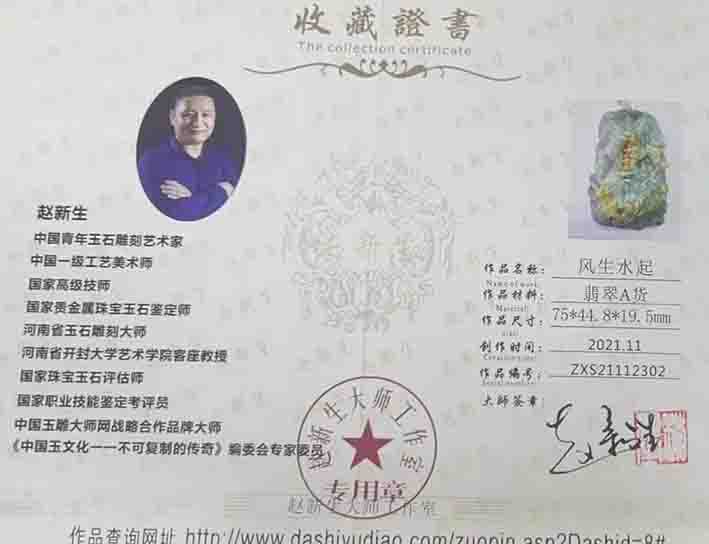 收藏證書
The collection certificate
赵新生
中国青年玉石雕刻艺术家
中国一级工艺美术师
国家高级技师
国家贵金属珠宝玉石鉴定师
河南省玉石雕刻大师
河南省开封大学艺术学院客座教授
国家珠宝玉石评估师
国家职业技能鉴定考评员
中国玉雕大师网战略合作品牌大师
《中国玉文化一一不可复制的传奇》编委会专家委员
作品名称: 风生水起
Name of work:
作品材料: 翡翠A货
Material:
作品尺寸: 75*44.8*19.5mm
创作时间: 2021.11
作品编号: ZXS21112302
大师签章: 赵新生
赵新生大师工作室
专用章
赵新生大师工作室
作品查询网址 http://www.dashiyudiao.com/zuopin.asp?Dashid=8#